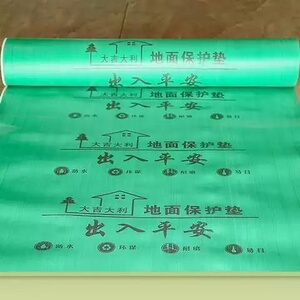 大吉大利 地面保护垫
出入平安
大吉大利 地面保护垫
出入平安
防水 环保 耐磨
大吉大利 地面保护垫
出入平安
防水 环保 耐磨